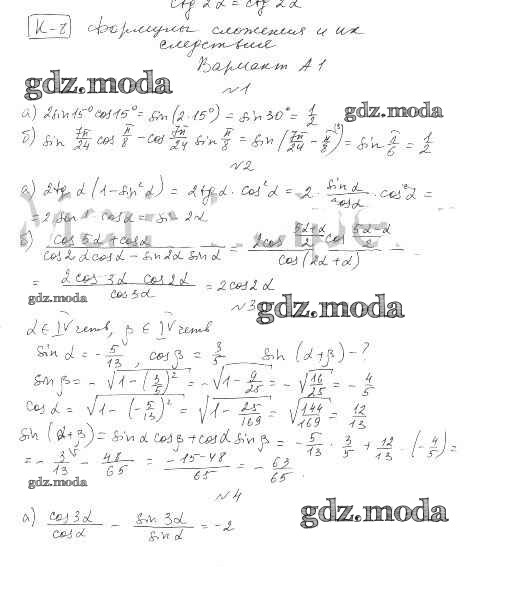 ctg 2α = ctg 2α
К-2 Формулы сложения и их
следствия
Вариант А1
gdz.moda
№1
а) 2sin15° cos15° = sin(2·15°) = sin30° = 1/2
gdz.moda
б) sin 7π/24 cos π/8 − cos 7π/24 sin π/8 = sin(7π/24 − π/8) = sin π/6 = 1/2
№2
а) 2tg α (1−sin²α) = 2tgα · cos²α = 2 · sinα/cosα · cos²α =
= 2 sinα cosα = sin 2α
б) (cos 5α + cosα)/(cos2α cosα − sin2α sinα) = (2cos (5α+α)/2 cos (5α−α)/2)/cos(2α+α)
= (2cos 3α cos2α)/cos3α = 2cos2α
gdz.moda
№3
gdz.moda
α ∈ IV четв, β ∈ IV четв
sin α = −5/13, cosβ = 3/5 sin (α+β) − ?
sinβ = −√(1−(3/5)²) = −√(1−9/25) = −√(16/25) = −4/5
cosα = √(1−(−5/13)²) = √(1−25/169) = √(144/169) = 12/13
sin(α+β) = sinα cosβ + cosα sinβ = −5/13 · 3/5 + 12/13 · (−4/5) =
= −3/13 − 48/65 = (−15−48)/65 = −63/65.
gdz.moda
№4
а) cos3α/cosα − sin3α/sinα = −2
gdz.moda